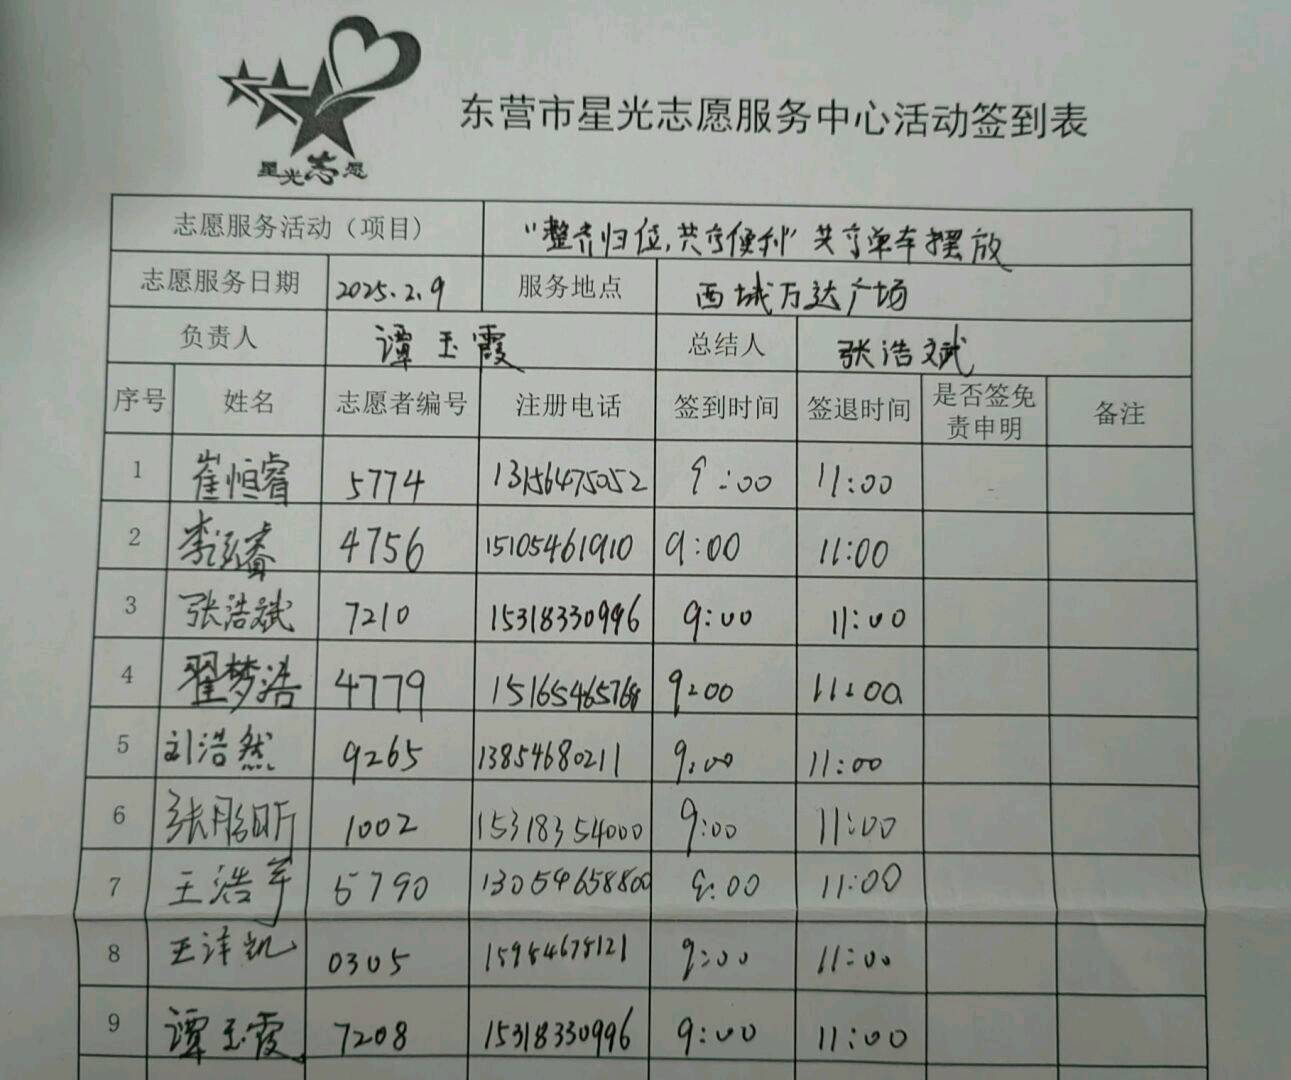 星光志愿
东营市星光志愿服务中心活动签到表
志愿服务活动（项目） “整齐归位,共享便利”共享单车摆放
志愿服务日期 2025.2.9 服务地点 西城万达广场
负责人 谭玉霞 总结人 张浩斌
序号 姓名 志愿者编号 注册电话 签到时间 签退时间 是否签免责申明 备注
1 崔恒睿 5774 13156475052 9:00 11:00
2 李泓睿 4756 15105461910 9:00 11:00
3 张浩斌 7210 15318330996 9:00 11:00
4 翟梦浩 4779 15165465768 9:00 11:00
5 刘浩然 9265 13854680211 9:00 11:00
6 张彤昕 1002 15318354000 9:00 11:00
7 王浩宇 5790 13054658800 9:00 11:00
8 王泽凯 0305 15954675121 9:00 11:00
9 谭玉霞 7208 15318330996 9:00 11:00